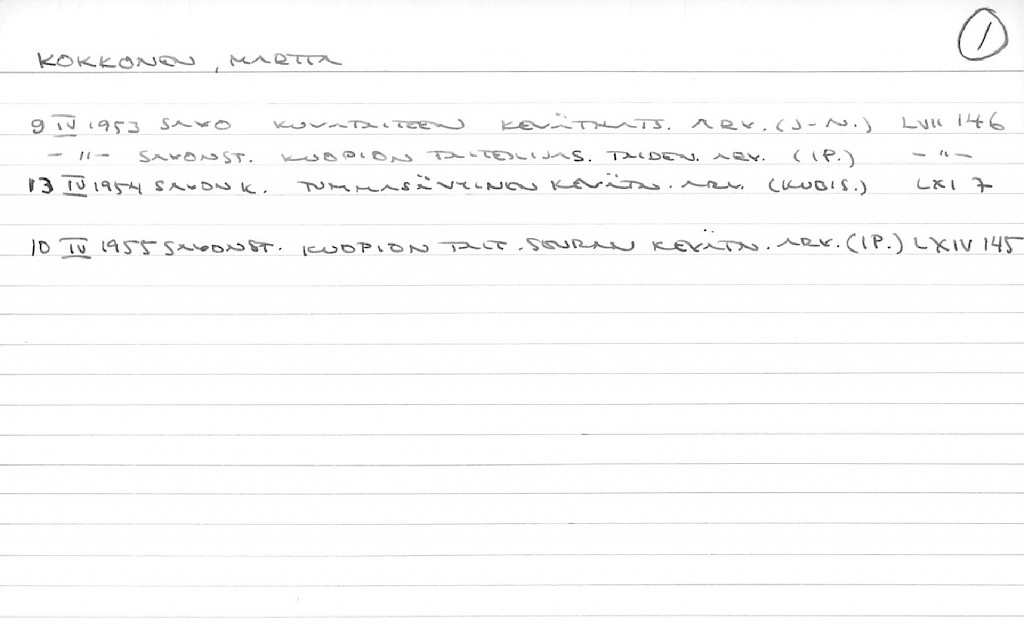 1
KOKKONEN, MARTTA
9 IV 1953 SAVO KUVATAITEEN KEVÄTKATS. ARV. (J-N.) LVII 146
- " - SAVONST. KUOPION TAITEILIJAS. TAIDEN. ARV. (IP.) - " -
13 IV 1954 SAVON K. TUMMASÄVYINEN KEVÄTN. ARV. (KUBIS.) LXI 7
10 IV 1955 SAVONST. KUOPION TAIT. SEURAN KEVÄTN. ARV. (IP.) LXIV 145